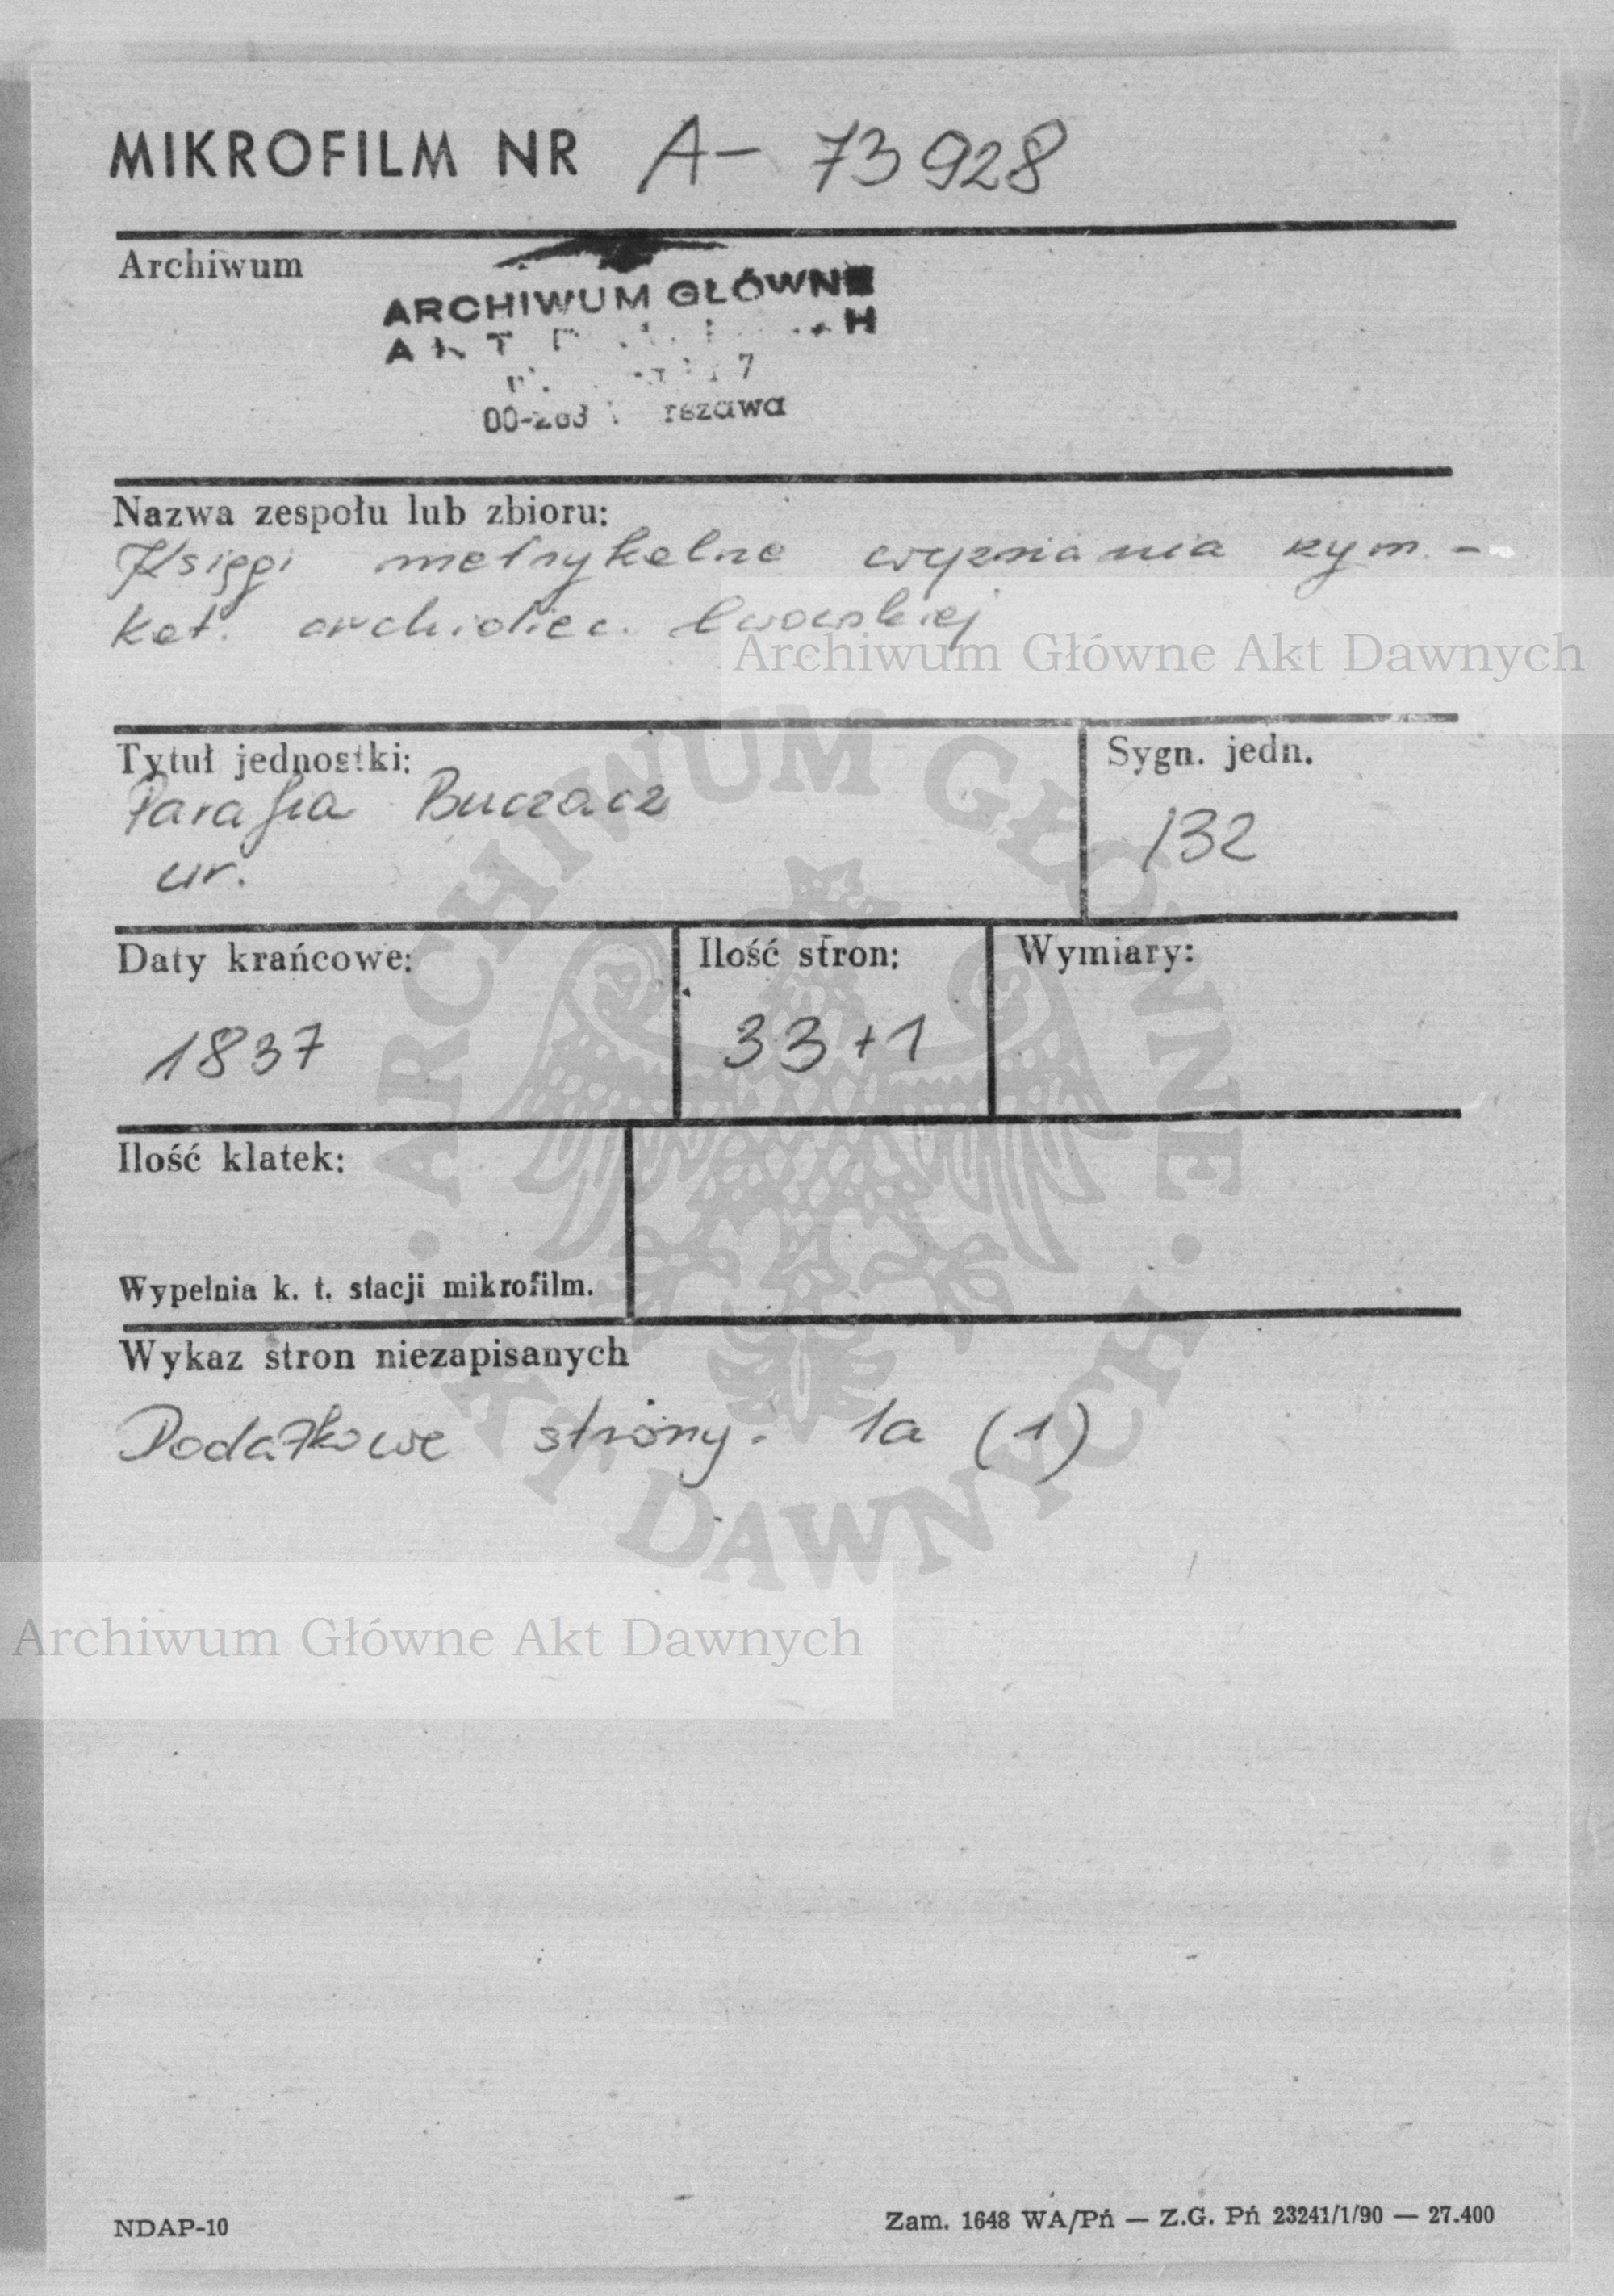 MIKROFILM NR A- 73928
Archiwum
ARCHIWUM GŁÓWNE
7
Nazwa zespołu lub zbioru:
Księgi metrykalne wyznania rzym.-
kat. archidiec. lwowskiej
Archiwum Główne Akt Dawnych
Tytuł jednostki:
Parafia Buczacz
ur.
Sygn. jedn.
132
Daty krańcowe:
1837
Ilość stron:
33+1
Wymiary:
Ilość klatek:
Wypełnia k. t. stacji mikrofilm.
Wykaz stron niezapisanych
Dodatkowe strony: 1a (1)
ARCHIWUM GŁÓWNE AKT DAWNYCH
Archiwum Główne Akt Dawnych
NDAP-10
Zam. 1648 WA/Pń — Z.G. Pń 23241/1/90 — 27.400